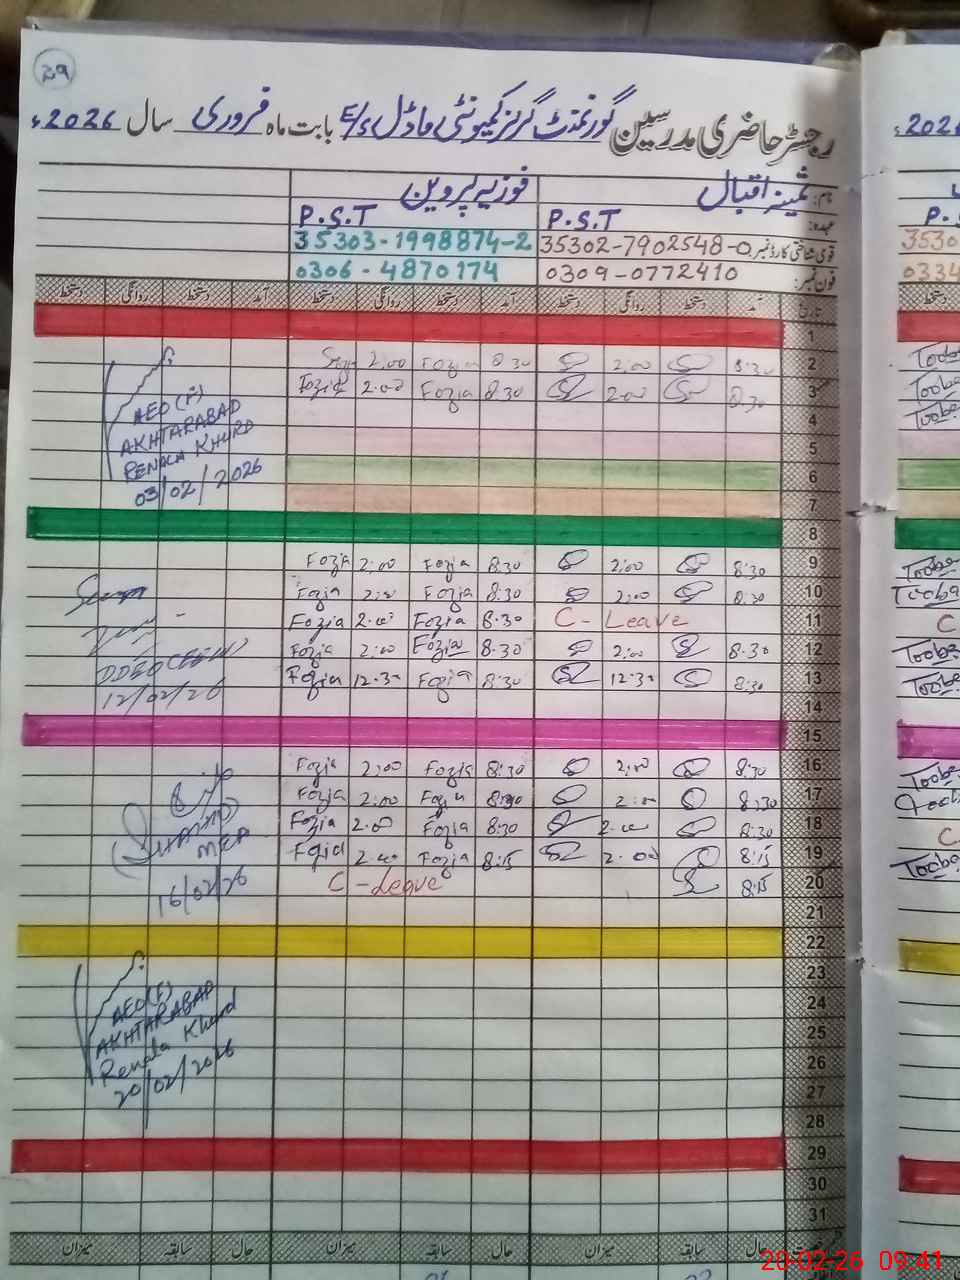 29
رجسٹر حاضری مدرسین گورنمنٹ گرلز کمیونٹی ماڈل E/S بابت ماہ فروری سال 2026ء
نام: ثمینہ اقبال فوزیہ پروین
عہدہ: P.S.T P.S.T
قومی شناختی کارڈ نمبر: 35302-7902548-0 35303-1998874-2
فون نمبر: 0309-0772410 0306-4870174
تاریخ آمد دستخط روانگی دستخط آمد دستخط روانگی دستخط آمد دستخط روانگی دستخط
1
2 8:30 2:00 8:30 Fozia 2:00
3 8:30 2:00 8:30 Fozia 2:00 Fozia
4
5
6
7
AEO(F)
AKHTARABAD
RENALA KHURD
03/02/2026
8
9 8:30 2:00 8:30 Fozia 2:00 Fozia
10 8:30 2:00 8:30 Fozia 2:00 Fozia
11 C-Leave 8:30 Fozia 2:00 Fozia
12 8:30 2:00 8:30 Fozia 2:00 Fozia
13 8:30 12:30 8:30 Fozia 12:30 Fozia
14
12/02/26
15
16 8:30 2:00 8:30 Fozia 2:00 Fozia
17 8:30 2:00 8:30 Fozia 2:00 Fozia
18 8:30 2:00 8:30 Fozia 2:00 Fozia
19 8:15 2:00 8:15 Fozia 2:00 Fozia
20 8:15 C-Leave
21
MEA
16/02/26
22
23
24
25
26
27
28
AEO(F)
AKHTARABAD
Renala Khurd
20/02/2026
29
30
31
حال سابقہ میزان حال سابقہ میزان حال سابقہ میزان
2026
P.
3530
0334
Toobe
Toobe
Toobe
Toobe
Tooba
C
Toobe
Toobe
Toobe
C
Toobe
20-02-26 09:41